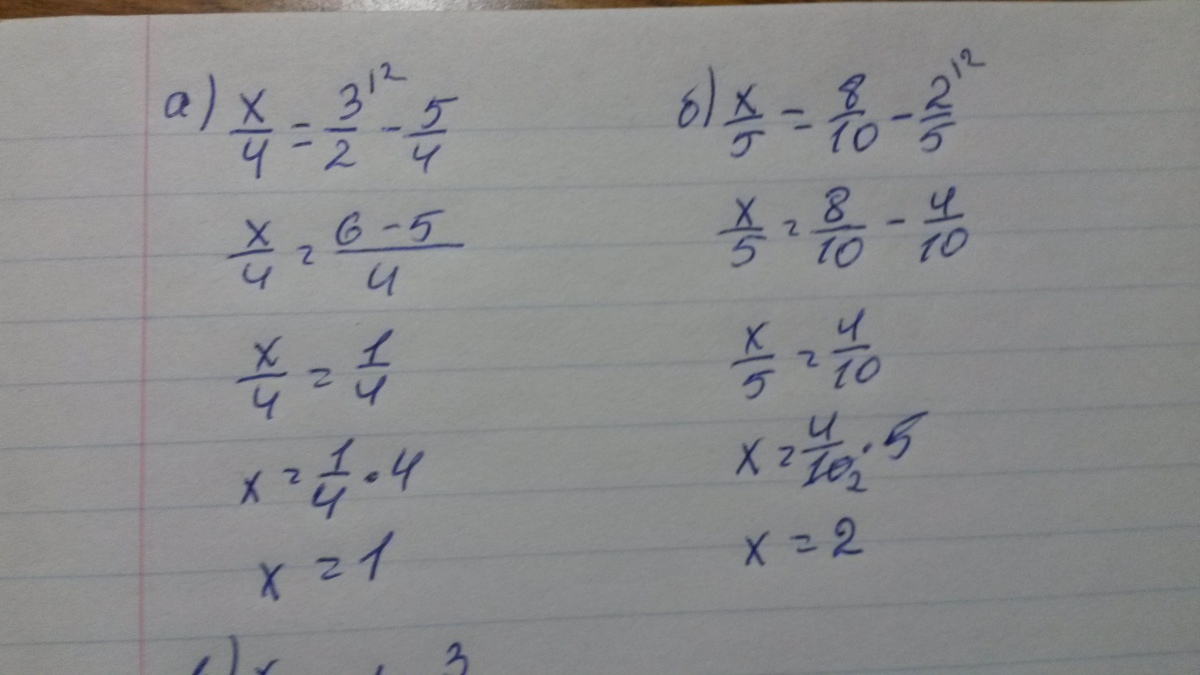 а) x/4 = 3/2 ^{\2} - 5/4
x/4 = (6 - 5)/4
x/4 = 1/4
x = 1/4 · 4
x = 1
б) x/5 = 8/10 - 2/5 ^{\2}
x/5 = 8/10 - 4/10
x/5 = 4/10
x = 4/10 2 · 5
x = 2
3